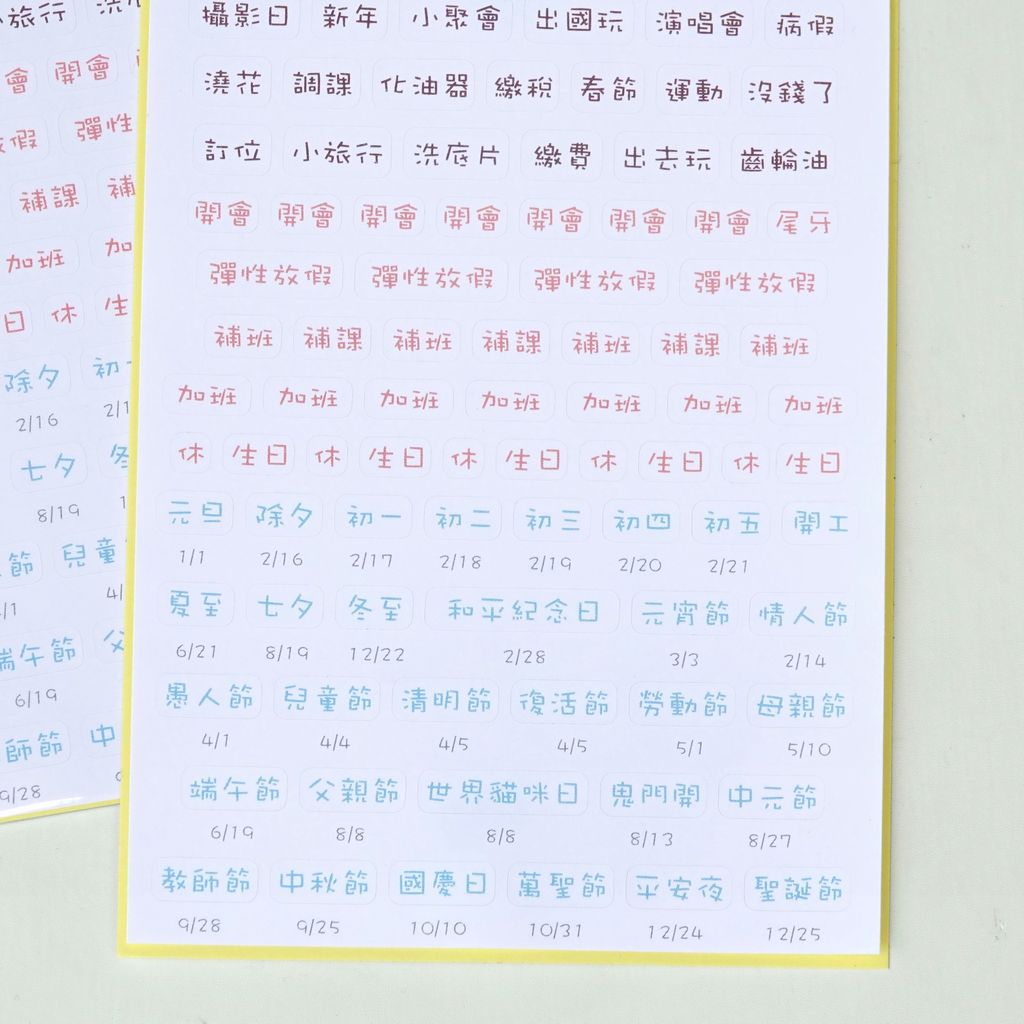 攝影日 新年 小聚會 出國玩 演唱會 病假
澆花 調課 化油器 繳稅 春節 運動 沒錢了
訂位 小旅行 洗底片 繳費 出去玩 齒輪油
開會 開會 開會 開會 開會 開會 開會 尾牙
彈性放假 彈性放假 彈性放假 彈性放假
補班 補課 補班 補課 補班 補課 補班
加班 加班 加班 加班 加班 加班 加班
休 生日 休 生日 休 生日 休 生日 休 生日
元旦 除夕 初一 初二 初三 初四 初五 開工
1/1 2/16 2/17 2/18 2/19 2/20 2/21
夏至 七夕 冬至 和平紀念日 元宵節 情人節
6/21 8/19 12/22 2/28 3/3 2/14
愚人節 兒童節 清明節 復活節 勞動節 母親節
4/1 4/4 4/5 4/5 5/1 5/10
端午節 父親節 世界貓咪日 鬼門開 中元節
6/19 8/8 8/8 8/13 8/27
教師節 中秋節 國慶日 萬聖節 平安夜 聖誕節
9/28 9/25 10/10 10/31 12/24 12/25
小旅行 洗
會 開會
放假 彈性
補課 補
加班 加
日 休 生
除夕 初一
2/16 2/1
七夕 冬
8/19 1
節 兒童
/1 4/
端午節 父
6/19
師節 中
9/28